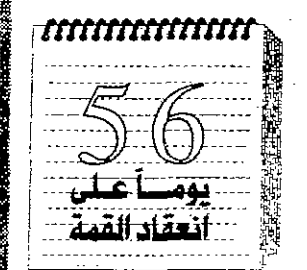 56
يوماً على
انعقاد القمة